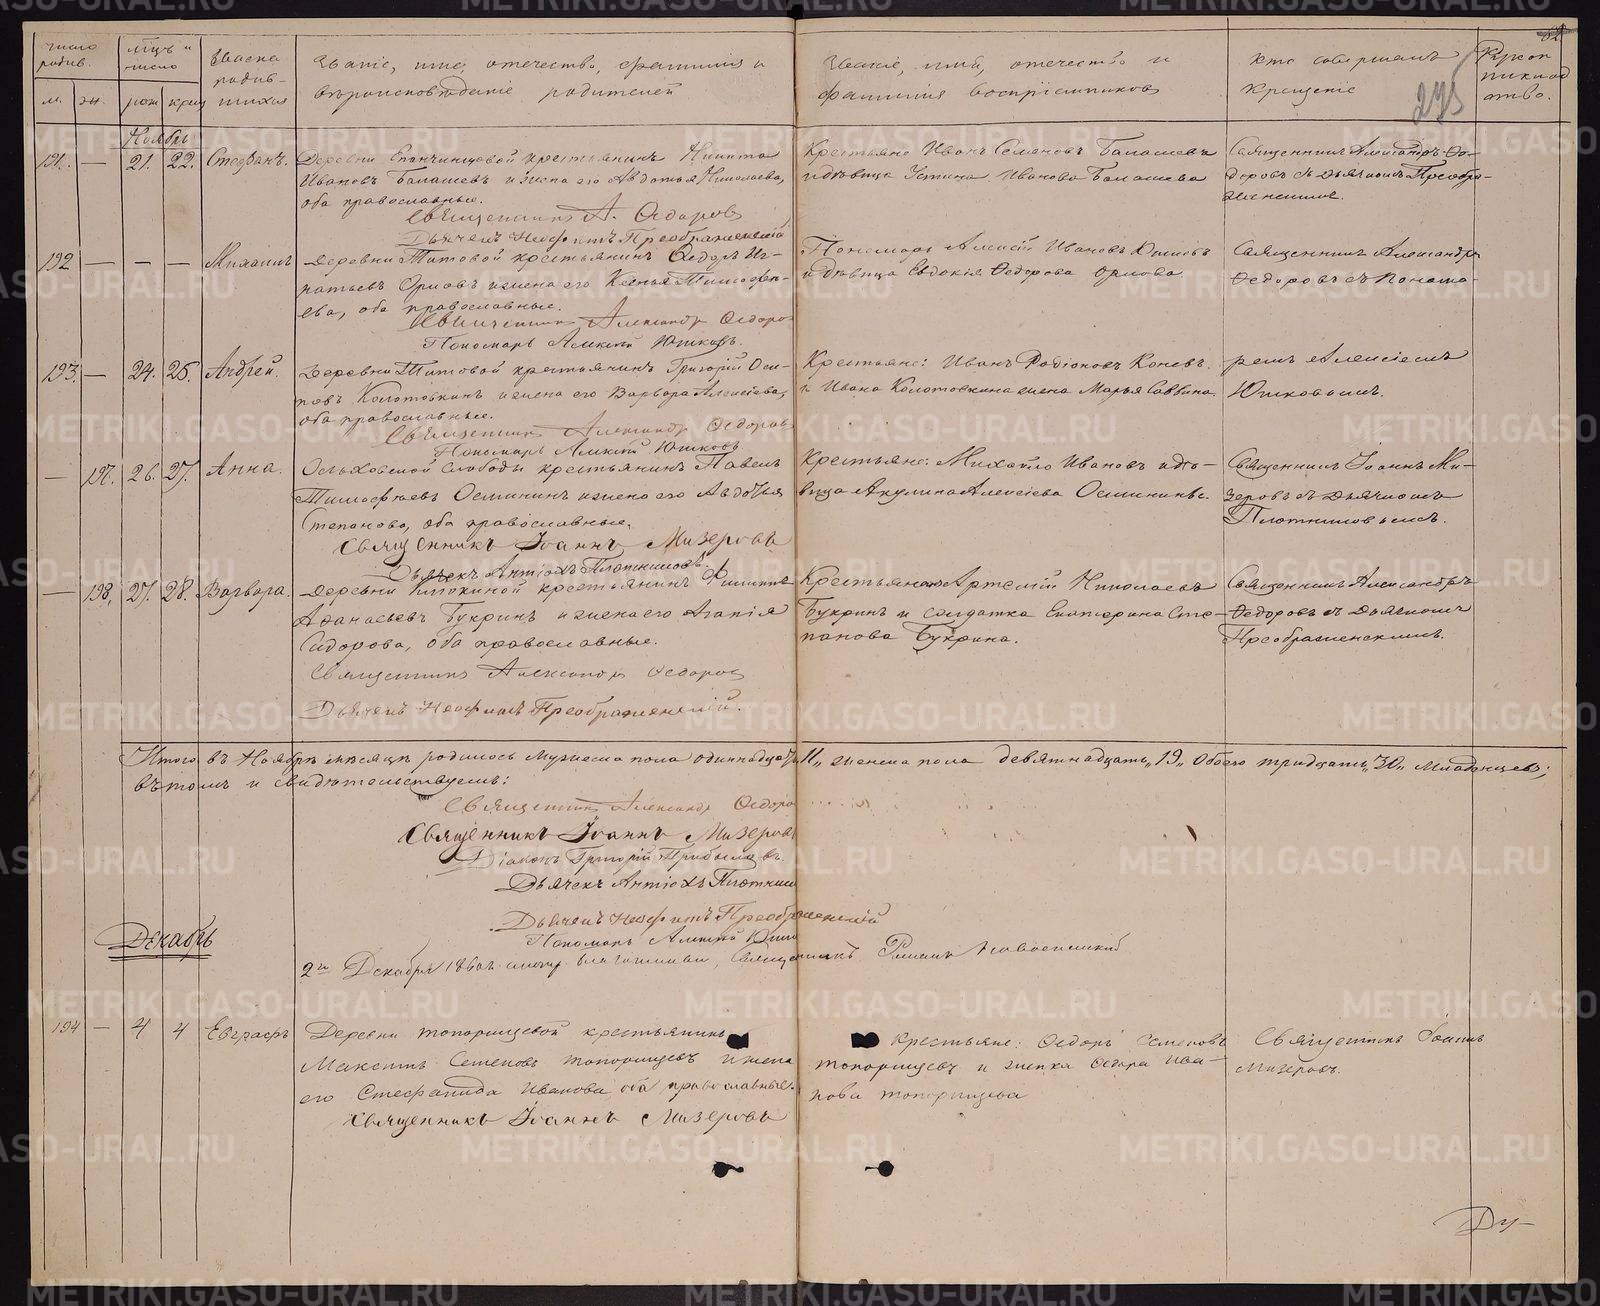 число родив.
мѣцъ и число
м.
ж.
рож
крещ
Имена родив-
шихся
Званіе, имя, отечество, фамилія и
вѣроисповѣданіе родителей
Званіе, имя, отечество и
фамилія воспріемниковъ
Кто совершалъ
крещеніе
Рукоп
рикклад
ство.
275
Ноябрь
191. — 21. 22. Стефанъ.
Деревни Епанчинцовой крестьянинъ Никита
Ивановъ Балашевъ и жена его Авдотья Николаева,
оба православные.
Священникъ А. Федоровъ
Дьячекъ Неофитъ Преображенскій
Крестьяне Иванъ Семеновъ Балашевъ
и дѣвица Устина Иванова Балашева
Священникъ Александръ Фе-
доровъ съ дьячкомъ Преобра-
женскимъ.
192 — — — Михаилъ
Деревни Титовой крестьянинъ Федоръ Иг-
натьевъ Орловъ и жена его Ксенья Тимофѣ-
ева, оба православные.
Священникъ Александр Федоров
Пономарь Алексій Юшковъ.
Пономарь Алексій Ивановъ Юшковъ
и дѣвица Евдокія Федорова Орлова
Священникъ Александръ
Федоровъ съ Понома-
193. — 24. 25. Андрей.
Деревни Титовой крестьянинъ Григорій Оси-
повъ Колотовкинъ и жена его Варвара Алексіева,
оба православные.
Священникъ Александр Федоров
Пономарь Алексій Юшковъ
Крестьяне: Иванъ Родіоновъ Коневъ.
и Ивана Колотовкина жена Марья Саввина.
ремъ Алексіемъ
Юшковымъ.
— 197. 26. 27. Анна.
Ольховской Слободы крестьянинъ Павелъ
Тимофѣевъ Осминин и жена его Авдотья
Степанова, оба православные.
Священникъ Іоаннъ Мизеровъ
Дьячекъ Антіохъ Плотниковъ.
Крестьяне: Михайло Ивановъ и дѣ-
вица Акулина Алексіева Осминины.
Священникъ Іоаннъ Ми-
зеровъ съ дьячкомъ
Плотниковымъ.
— 198. 27. 28. Варвара.
Деревни крестьянинъ Филиппъ
Афанасьевъ Букринъ и жена его Агапія
Сидорова, оба православные.
Священникъ Александръ Федоров
Дьячекъ Неофитъ Преображенскій.
Крестьянинъ Артемій Николаевъ
Букринъ и солдатка Екатерина Сте-
панова Букрина.
Священникъ Александръ
Федоровъ съ Дьячкомъ
Преображенскимъ.
Итого въ Ноябрѣ мѣсяцѣ родилось Мужеска пола одиннадцать 11, женска пола девятнадцать, 19, Обоего тридцать, 30, младенцевъ;
въ томъ и свидѣтельствуемъ:
Священникъ Александр Федоро
Священникъ Іоаннъ Мизеровъ
Діаконъ Григорій Прибылевъ.
Дьячекъ Антіохъ Плотник
Дьячекъ Неофитъ Преображенскій
Пономарь Алексій Юшк
Декабрь
2го Декабря смотр. благочинный, Священникъ
194 — 4 4 Евграфъ
Деревни топорищевой крестьянинъ
Максимъ Семеновъ топорищевъ и жена
его Стефанида Иванова, оба православные.
Священникъ Іоаннъ Мизеровъ
Крестьяне: Федоръ Семеновъ
топорищевъ и женка Федора Ива-
нова топорищева
Священникъ Іоаннъ
Мизеровъ.
METRIKI.GASO-URAL.RU